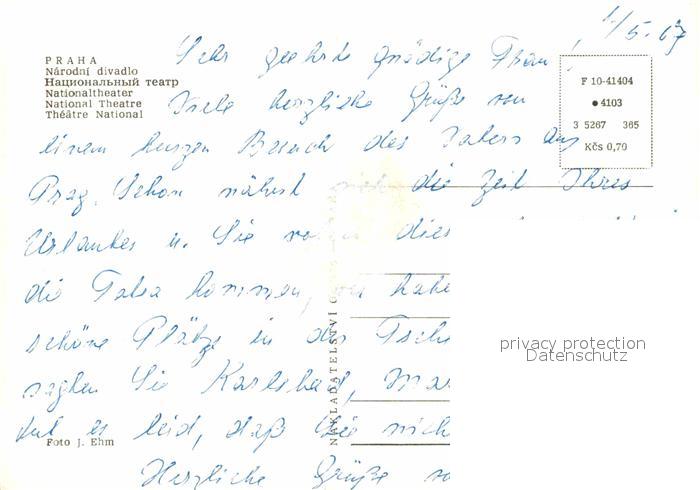 1/5.67
Sehr geehrte gnädige Frau,
PRAHA
Národní divadlo
Национальный театр
Nationaltheater
National Theatre
Théâtre National
F 10-41404
4103
3 5267 365
Kčs 0,70
Viele herzliche Grüße von
einem kurzen Besuch des Vaters aus
Prag. Schon nähert die Zeit Ihres
Urlaubes u. Sie dies
die Tatra kommen, habe
schöne Plätze in der Tsche
Sie Karlsbad, Mar
tut es leid, daß Sie nich
Herzliche Grüße vo
NAKLADATELSTVÍ
Foto J. Ehm
privacy protection
Datenschutz